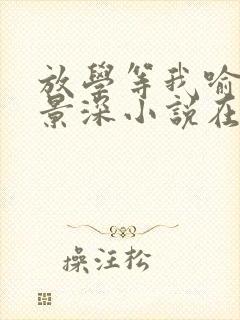 放學等我喻
景深小說在
操汪松